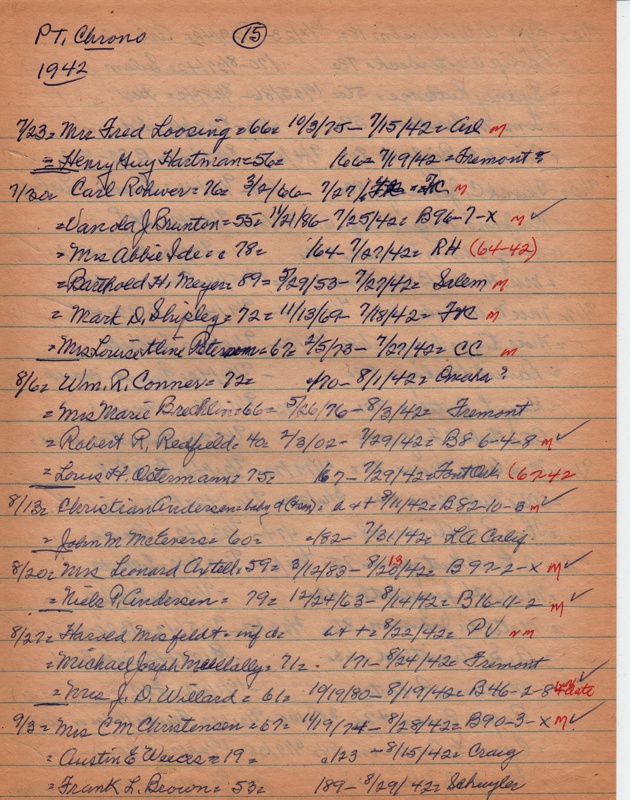 PT. Chrono (15)
1942
7/23= Mrs Fred Loosing=66= 10/3/75- 7/15/42= m
= Henry Guy Hartman=56= '66= 7/19/42= Fremont?
7/30= Carl Rohwer=76= 3/2/66- 7/27/ = FC m
= Vanda J. Brunton=55= 11/21/86- 7/25/42= B96-7-X m ✓
= Mrs Abbie Ide= 78= '64- 7/27/42= RH (64-42)
= Barthold H. Meyer= 89= 5/29/53- 7/27/42= Salem m
= Mark D. Shipley=72= 11/13/69- 7/18/42= m
= Mrs Louise Aline Petersen=67= 2/5/73- 7/27/42= CC m
8/6= Wm. R. Conner= 72= /70- 8/1/42= Omaha?
= Mrs Marie Brechlin=66= 5/26/76- 8/3/42= Fremont
= Robert R. Redfield= 40= 2/3/02- 7/29/42= B8 6-4-8 m ✓
= Louis H. Ostermann= 75= '67- 7/29/42= (67-42
8/13= Christian Andersen= baby d 8/11/42= B82-10-3 m ✓
= John M McEvers= 60= /82- 7/31/42= LA Calif.
8/20= Mrs Leonard Axtell=59= 3/12/83- 8/13/42= B97-2-X m ✓
= Niels P. Andersen= 79= 12/24/63- 8/14/42= B16-11-2 m ✓
8/27= Harold Misfeldt= inf d= 8/22/42= PV m
= Michael Joseph = 71= '71- 8/24/42= Fremont
= Mrs J. D. Willard= 61= 10/19/80- 8/19/42= B46-2-8 ✓
9/3= Mrs C M Christensen=67= 11/19/74- 8/28/42= B90-3-X m ✓
= Austin E =19= /23 - 8/15/42= Craig
= Frank L. Brown= 53= '89- 8/29/42= Schuyler